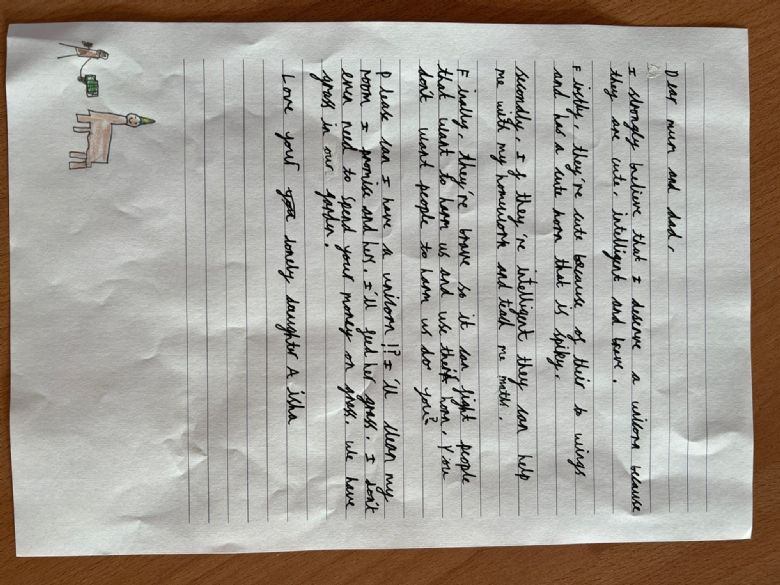 Dear mum and dad,
I strongly believe that I deserve a unicorn because
they are cute, intelligent and brave.
Firstly, they're cute because of their b wings
and has a cute horn that is spiky.
secondly, I f they're intelligent they can help
me with my homework and tead me math.
Finally, they're brave so it can fight people
that want to harm us and use their horn. You
dont want people to harm us do you?
Please can I have a unicorn!? I'll clean my
room I promise and hers. I'll feed her grass. I don't
even need to spend your money on grass. We have
grass in our garden.
Love your you lonely daughter A isha